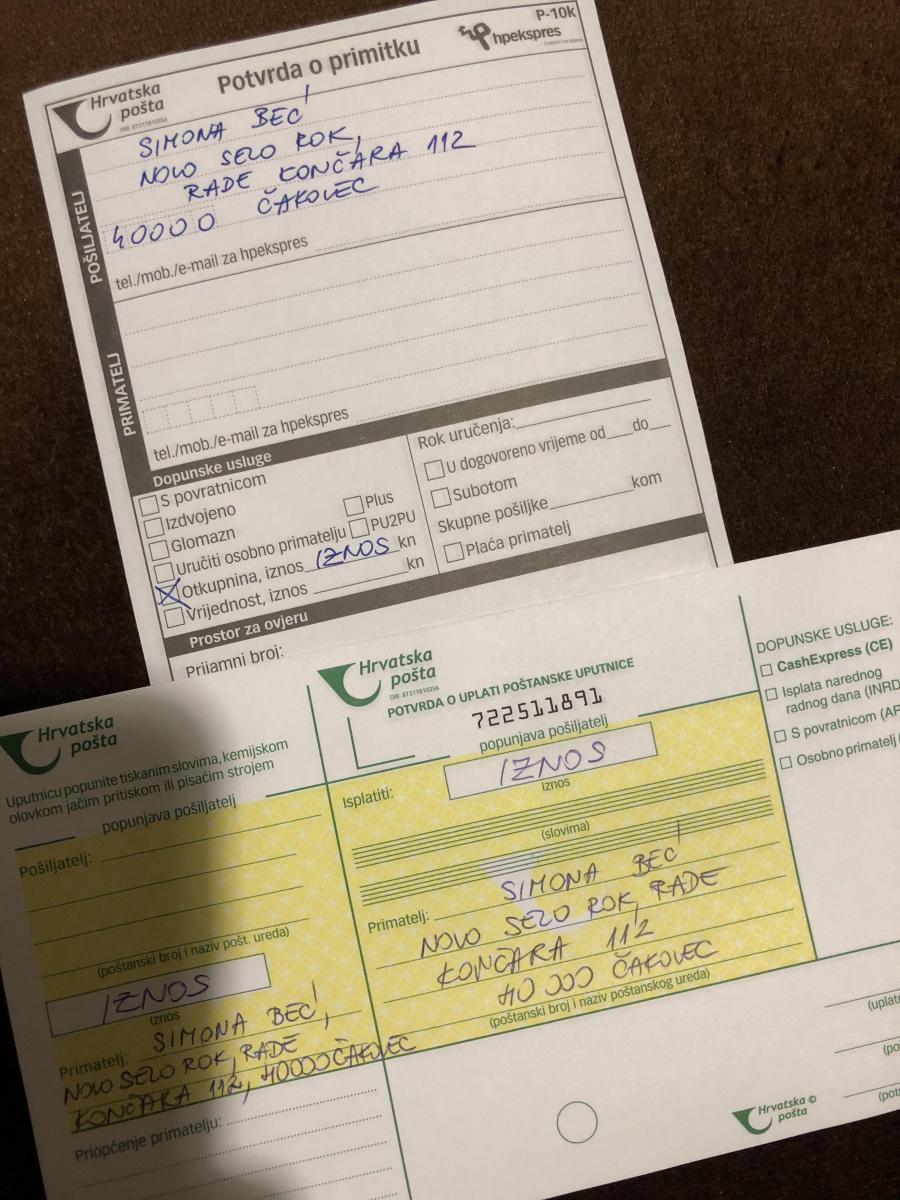 Hrvatska
pošta
OIB: 87311810356
Potvrda o primitku
P-10k
hpekspres
POŠILJATELJ
SIMONA BEĆ
NOVO SELO ROK,
RADE KONČARA 112
40000 ČAKOVEC
tel./mob./e-mail za hpekspres
PRIMATELJ
tel./mob./e-mail za hpekspres
Dopunske usluge
S povratnicom
Izdvojeno
Glomazn
Plus
Uručiti osobno primatelju
PU2PU
Otkupnina, iznos IZNOS kn
Vrijednost, iznos kn
Rok uručenja:
U dogovoreno vrijeme od do
Subotom
Skupne pošiljke kom
Plaća primatelj
Prostor za ovjeru
Prijamni broj:
Hrvatska
pošta
Uputnicu popunite tiskanim slovima, kemijskom
olovkom jačim pritiskom ili pisaćim strojem
popunjava pošiljatelj
Pošiljatelj:
(poštanski broj i naziv pošt. ureda)
IZNOS
Iznos
Primatelj: SIMONA BEĆ,
NOVO SELO ROK, RADE
KONČARA 112, 40000 ČAKOVEC
Priopćenje primatelju:
Hrvatska
pošta
OIB: 87311810356
POTVRDA O UPLATI POŠTANSKE UPUTNICE
722511891
popunjava pošiljatelj
Isplatiti:
IZNOS
Iznos
(slovima)
Primatelj: SIMONA BEĆ
NOVO SELO ROK, RADE
KONČARA 112
40 000 ČAKOVEC
(poštanski broj i naziv poštanskog ureda)
DOPUNSKE USLUGE:
CashExpress (CE)
Isplata narednog
radnog dana (INRD
S povratnicom (AR
Osobno primatelj (
(uplatn
(po
(potr
Hrvatska ©
pošta